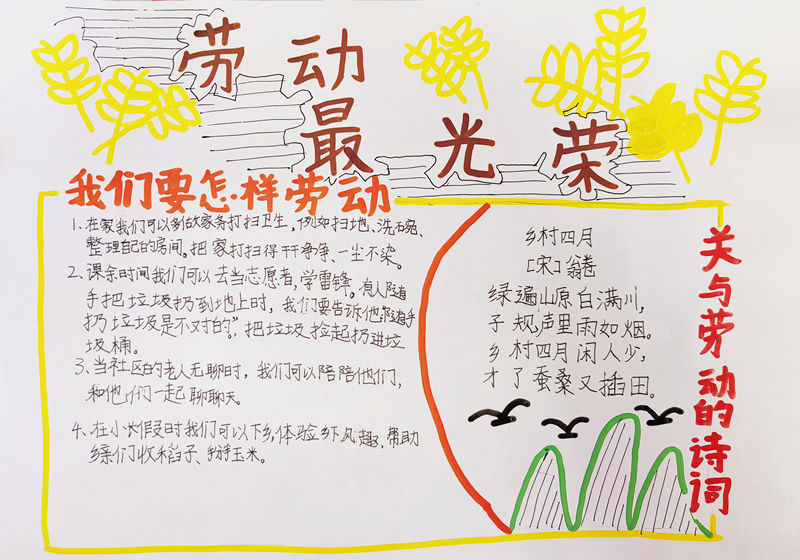 劳动
最光荣
我们要怎样劳动
1、在家我们可以多做家务打扫卫生。例如扫地、洗碗、
整理自己的房间。把家打扫得干干净净、一尘不染。
2、课余时间我们可以去当志愿者,学雷锋。有人随
手把垃圾扔到地上时,我们要告诉他“随手
扔垃圾是不对的。”把垃圾捡起扔进垃
圾桶。
3、当社区的老人无聊时,我们可以陪陪他们,
和他们一起聊聊天。
4、在小长假时我们可以下乡,体验乡下风趣,帮助
乡亲们收稻子、掰玉米。
乡村四月
[宋]翁卷
绿遍山原白满川,
子规声里雨如烟。
乡村四月闲人少,
才了蚕桑又插田。
关与劳动的诗词